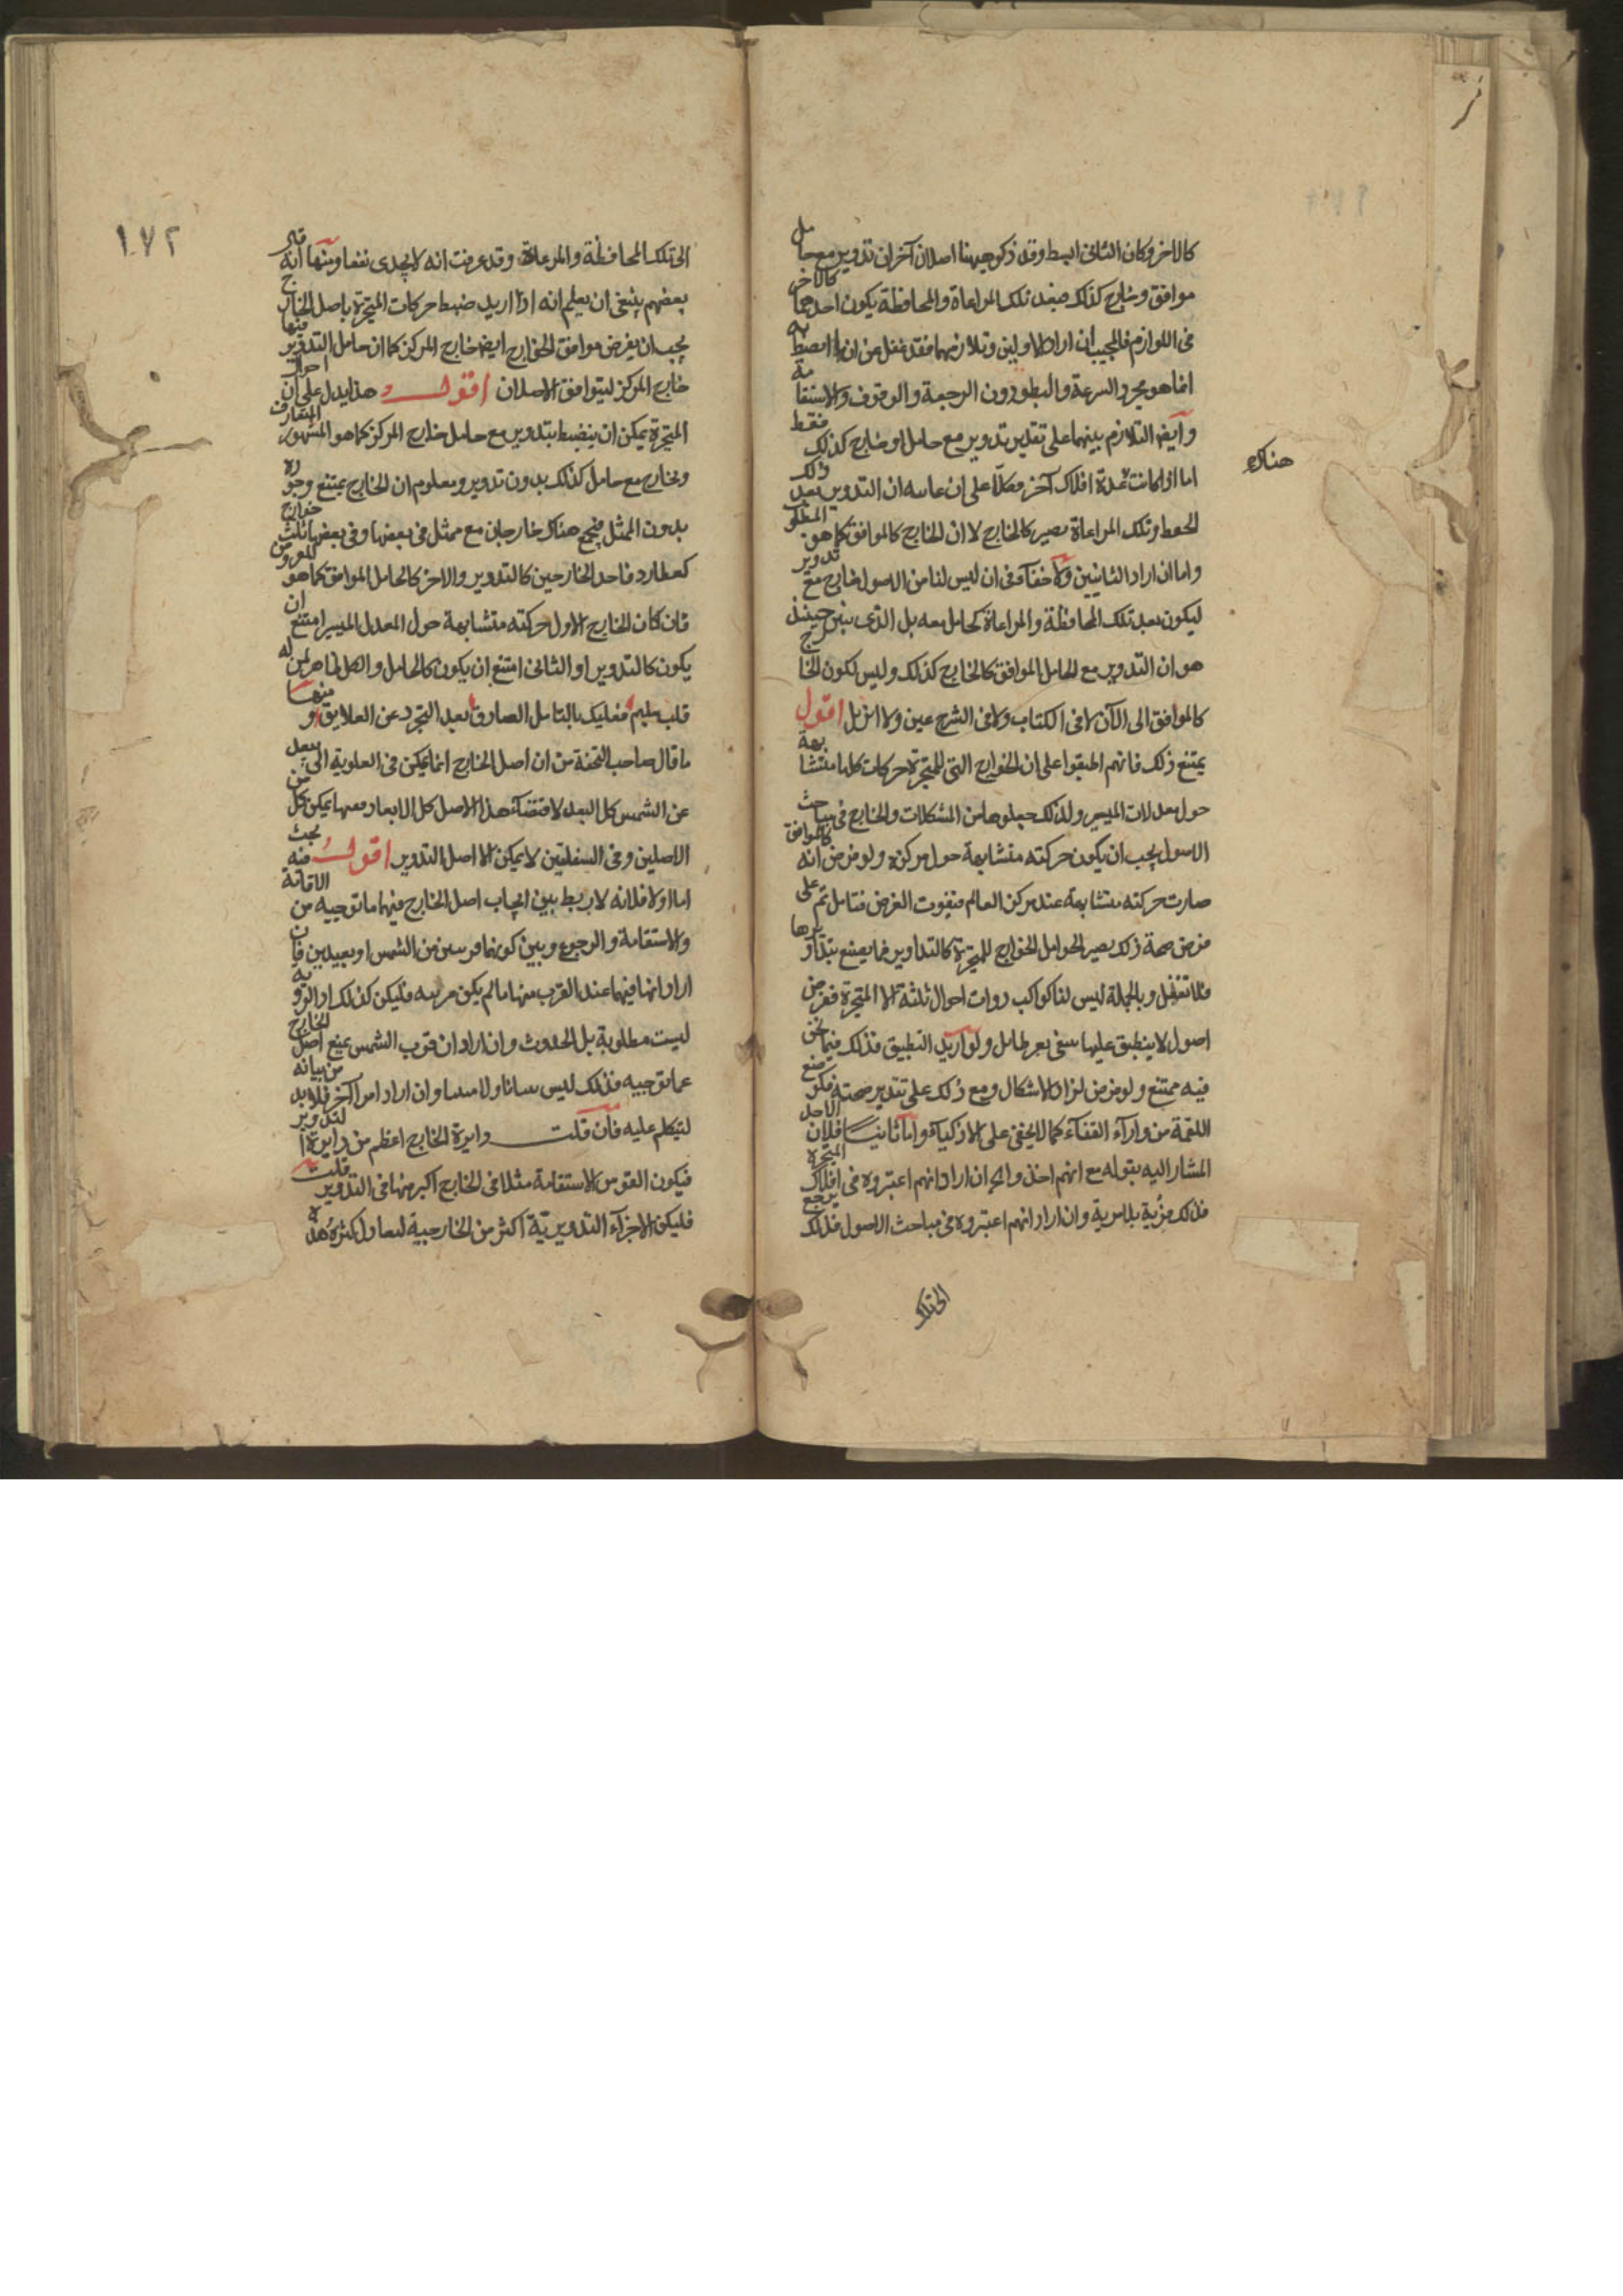 كالاخر وكان الثاني ابسط وقد ذكر جيهنا اصلان آخران تدوير مع حامل
موافق وخارج كذلك فبعد تلك المراعاة والمحافظة يكون احدهما كالاخر
في اللوازم فالمجيب ان اراد الاولين وتلازمهما فقد غفل عن ان ما انضبط به
انما هو مجرد السرعة والبطؤ دون الرجعة والوقوف والاستقامة
وايضا التلازم بينهما على تقدير تدوير مع حامل او خارج كذلك فقط
اما اذا كانت عدة افلاك آخر فكلا على ان التدوير بعد ذلك
هناك
وتلك المراعاة يصير كالخارج لا ان الخارج كالموافق كما هو المطلوب
واما ان اراد الثانيين ولا خفآء في ان ليس لنا من الاصول خارج مع تدوير
ليكون بعد تلك المحافظة والمراعاة كحامل معه بل الذي تبين حينئذ
هو ان التدوير مع الحامل الموافق كالخارج كذلك وليس لكون الخارج
كالموافق الى الآن لا في الكتاب ولا في الشرح عين ولا اثر بل اقول
يمتنع ذلك فانهم اطبقوا على ان الخوارج التي للمتحيرة حركات كلها متشابهة
حول معدلات المسير ولذلك جعلوها من المشكلات والخارج في مباحث
الاصول يجب ان يكون حركته متشابهة حول مركزه ولو فرض انه كالموافق
صارت حركته متشابهة عند مركز العالم فيفوت الغرض فتامل ثم على
فرض صحة ذلك يصير الحوامل الخوارج للمتحيرة كالتداوير فما يصنع بتداويرها
فلا تغفل وبالجملة ليس لنا كواكب ذوات احوال ثلثة الا المتحيرة ففرض
اصول لا ينطبق عليها ولو اريد التطبيق فذلك فيما نحن
فيه ممتنع ولو فرض لزاد الاشكال ومع ذلك على تقدير صحته فكوضع
اللقمة من وارآء القفآء كما لا يخفى على الاذكياء واما ثانيا فلان الاصل
المشار اليه بقوله مع انهم اخذوا ان اراد انهم اعتبروه في افلاك المتحيرة
فذلك فرية بلا مرية وان اراد انهم اعتبروه في مباحث الاصول فذلك يرجع
الى تلك
١٧٢
الى تلك المحافظة والمراعاة وقد عرفت انه لا يجدى نفعا ومنها انه قال
بعضهم ينبغي ان يعلم انه اذا اريد ضبط حركات المتحيرة باصل الخارج
يجب ان يفرض موافق الخارج ايضا خارج المركز كما ان حامل التدوير فيها
خارج المركز ليتوافق الاصلان اقول وهذا يدل على ان احوال
المتحيرة يمكن ان ينضبط بتدوير مع حامل خارج المركز كما هو المشهور المتعارف
وبخارج مع حامل كذلك بدون تدوير ومعلوم ان الخارج يمتنع وجوده
بدون الممثل فيجتمع هناك خارجان مع ممثل في بعضها وفي بعضها ثلث خوارج
كعطارد فاحد الخارجين كالتدوير والاخر كالحامل الموافق كما هو المفروض
فان كان الخارج الاول حركته متشابهة حول المعدل المسير امتنع ان
يكون كالتدوير او الثاني امتنع ان يكون كالحامل والكل ظاهر لمن له
قلب سليم فعليك بالتامل الصادق بعد التجرد عن العلايق ومنها
ما قال صاحب التحفة من ان اصل الخارج انما يمكن في العلوية التي يبعد
عن الشمس كل البعد لاقتضآء هذا الاصل كل الابعاد معها يمكن كل من
الاصلين وفي السفليتين لا يمكن الا اصل التدوير اقول فيه بحث
اما اولا فلانه لا ربط بين ايجاب اصل الخارج فيهما ما توجبه من الاقامة
والاستقامة والرجوع وبين كونهما قريبين من الشمس او بعيدين فان
اراد انها فيهما عند القرب منها ما لم يكن مرئيه فليكن كذلك اذ الرؤية
ليست مطلوبة بل الحدوث وان اراد ان قرب الشمس يمنع اصل الخارج
عما توجبه فذلك ليس بينا ولا مبينا وان اراد امرا آخر فلا بد من بيانه
ليتكلم عليه فان قلت دايرة الخارج اعظم من دايرة التدوير
فيكون القوس الاستقامة مثلا في الخارج اكبر منها في التدوير قلت
فليكن الاجزآء التدويرية اكثر من الخارجية ليعادل كثرة هذه